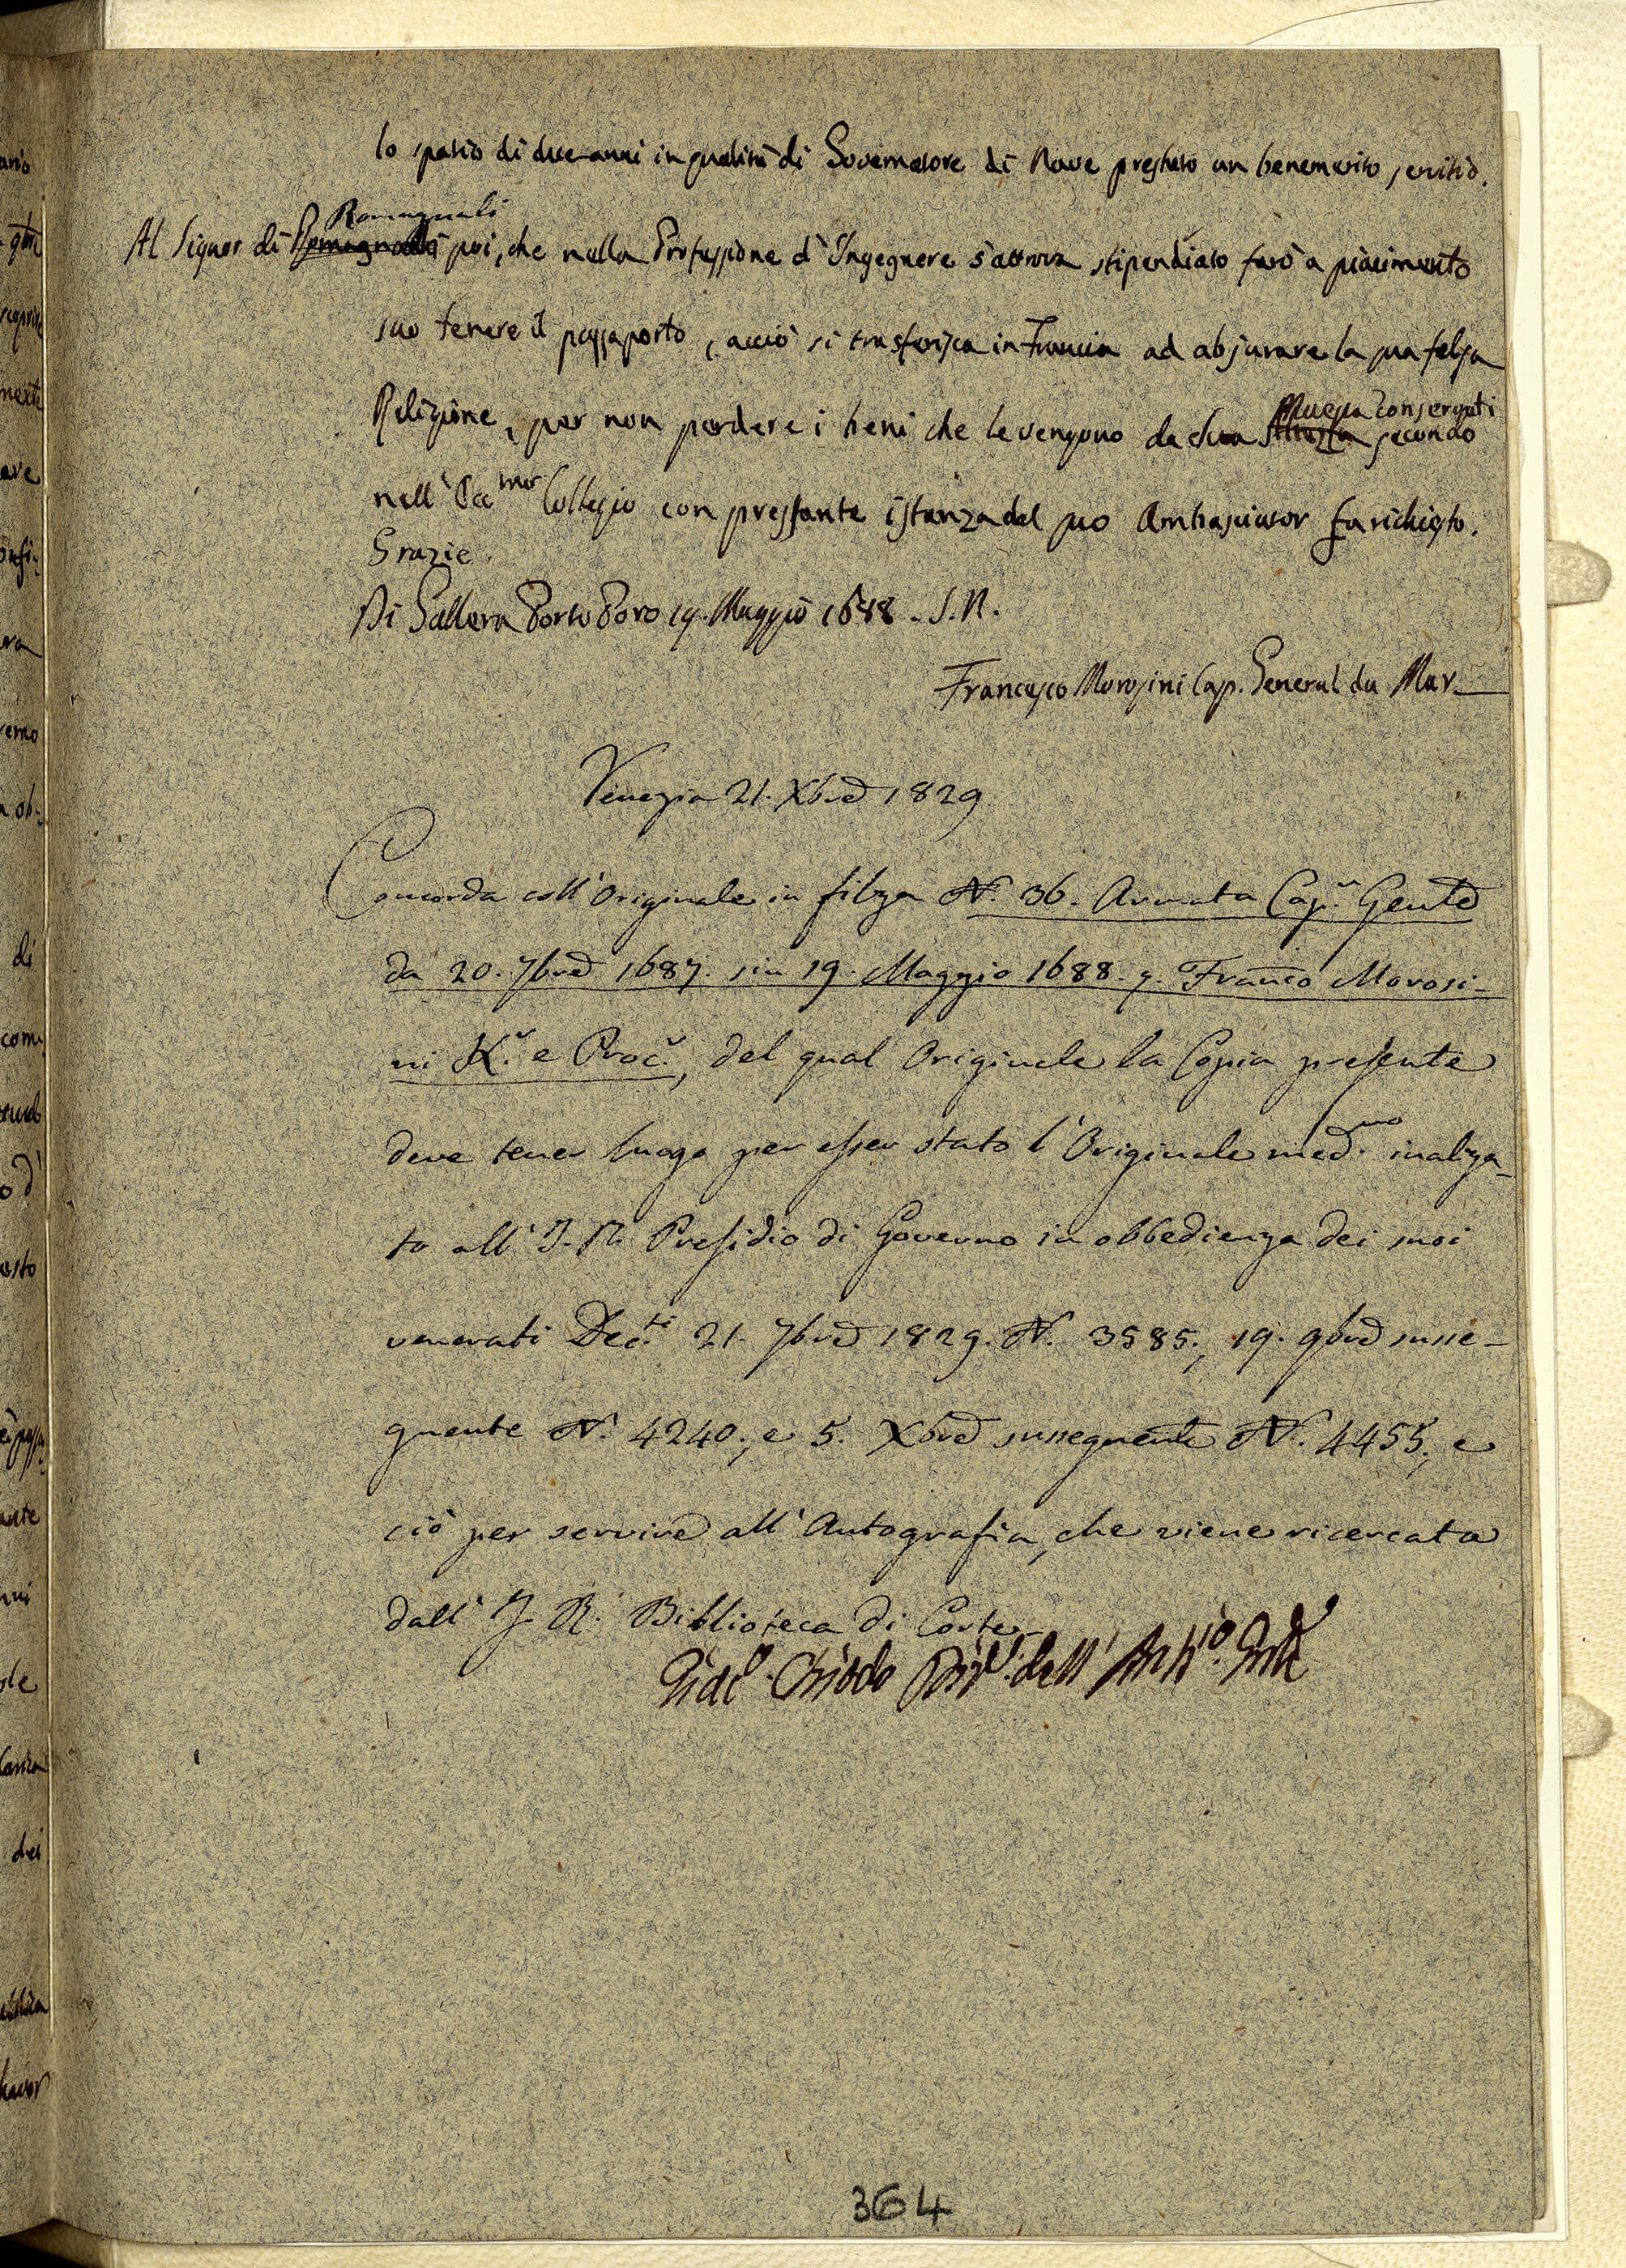 lo spatio di due anni in qualità di Governatore di Nave prestato un benemerito servitio.
Romagnali
Al Signor di poi, che nella Professione d'Ingegnere s'attrova stipendiato farò a piacimento
suo tenere il passaporto, acciò si trasferisca in Francia ad abjurare la sua falsa
Maestà conservati
Religione, per non perdere i beni che le vengono da Sua secondo
nell' Ecc.mo Collegio con pressante istanza dal suo Ambasciator fu richiesto.
Grazie.
Di Gallera Porto Poro 19. Maggio 1688. S.N.
Francesco Morosini Cap. General da Mar
Venezia 21. Xbre 1829
Concorda coll'Originale in filza N. 36. Armata Cap.n Genle
da 20. 7bre 1687. sin 19. Maggio 1688. q. Franco Morosi-
ni K.r e Proc.r, del qual Originale la Copia presente
deve tener luogo per esser stato l'Originale med.mo inalza-
to all' I. R. Presidio di Governo in obbedienza dei suoi
venerati Dec.ti 21. 7bre 1829. N. 3585., 19. 9bre susse-
guente N. 4240., e 5. Xbre susseguente N. 4455., e
ciò per servire all'Autografia, che viene ricercata
dall' I. R. Biblioteca di Corte
Chiodo Dir.e dell'
364